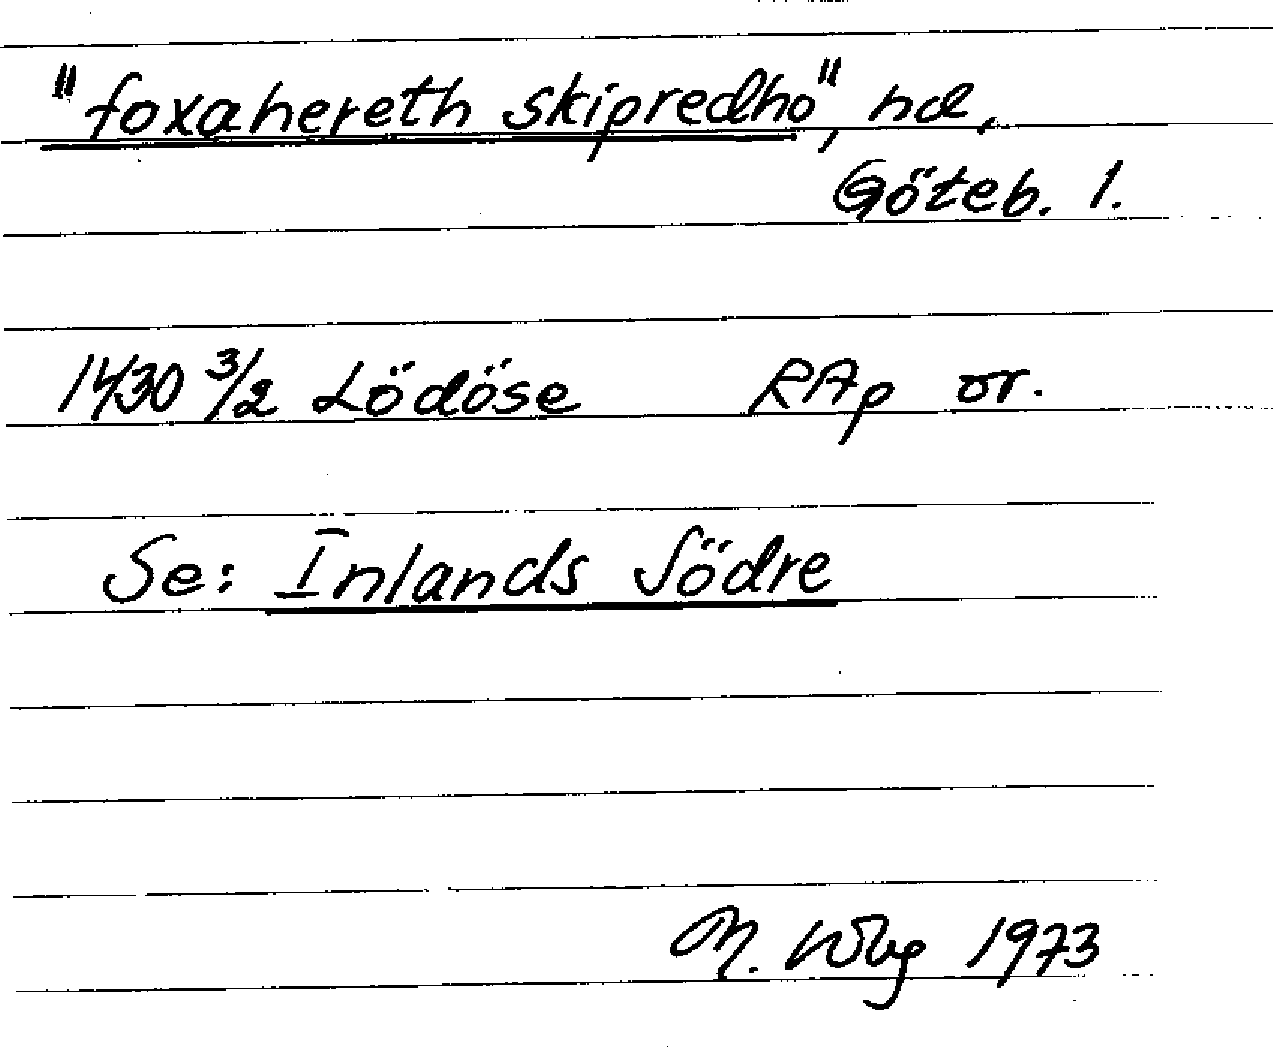 "foxahereth skipredho", hd,
Göteb. l.
1430 3/2 Lödöse RAp or.
Se: Inlands Södre
M. Wbg 1973